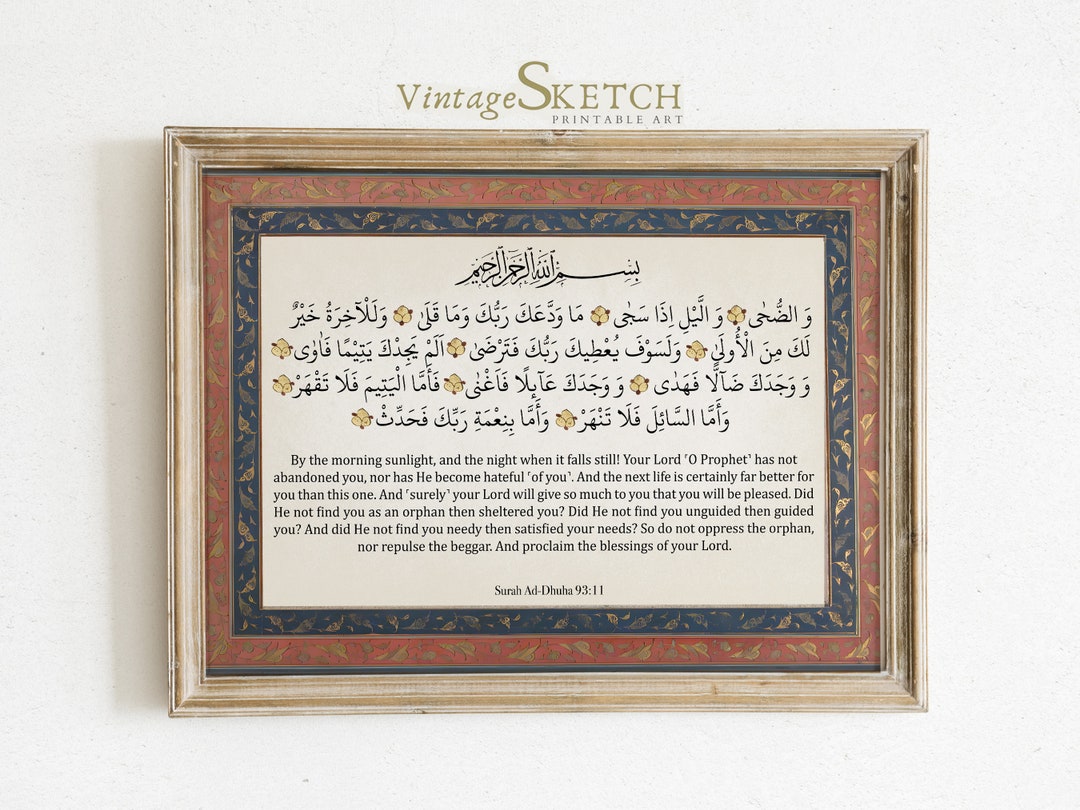 VintageSKETCH
PRINTABLE ART
بِسْمِ ٱللَّٰهِ ٱلرَّحْمَٰنِ ٱلرَّحِيمِ
وَ الضُّحٰى وَ الَّيْلِ اِذَا سَجٰى مَا وَدَّعَكَ رَبُّكَ وَمَا قَلَىٰ وَلَلْآخِرَةُ خَيْرٌ
لَكَ مِنَ الْأُولَىٰ وَلَسَوْفَ يُعْطِيكَ رَبُّكَ فَتَرْضَىٰ اَلَمْ يَجِدْكَ يَتِيْمًا فَاٰوٰى
وَ وَجَدَكَ ضَآلًّا فَهَدٰى وَ وَجَدَكَ عَآىِٕلًا فَاَغْنٰى فَأَمَّا الْيَتِيمَ فَلَا تَقْهَرْ
وَأَمَّا السَّائِلَ فَلَا تَنْهَرْ وَأَمَّا بِنِعْمَةِ رَبِّكَ فَحَدِّثْ
By the morning sunlight, and the night when it falls still! Your Lord ˹O Prophet˺ has not
abandoned you, nor has He become hateful ˹of you˺. And the next life is certainly far better for
you than this one. And ˹surely˺ your Lord will give so much to you that you will be pleased. Did
He not find you as an orphan then sheltered you? Did He not find you unguided then guided
you? And did He not find you needy then satisfied your needs? So do not oppress the orphan,
nor repulse the beggar. And proclaim the blessings of your Lord.
Surah Ad-Dhuha 93:11